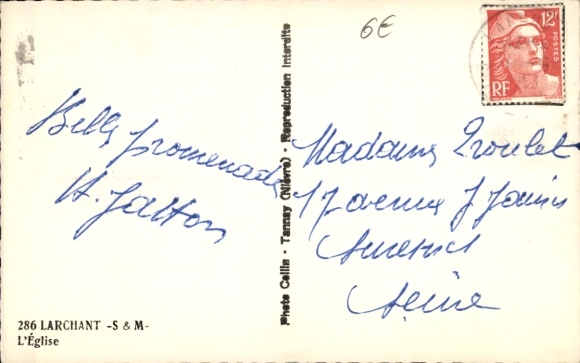 6€
12F
POSTES
RF
Belle promenade
H.
Madame
17 avenue J Jaurès
Seine
Photo Callin - Tannay (Nièvre) - Reproduction Interdite
286 LARCHANT -S & M-
L'Église